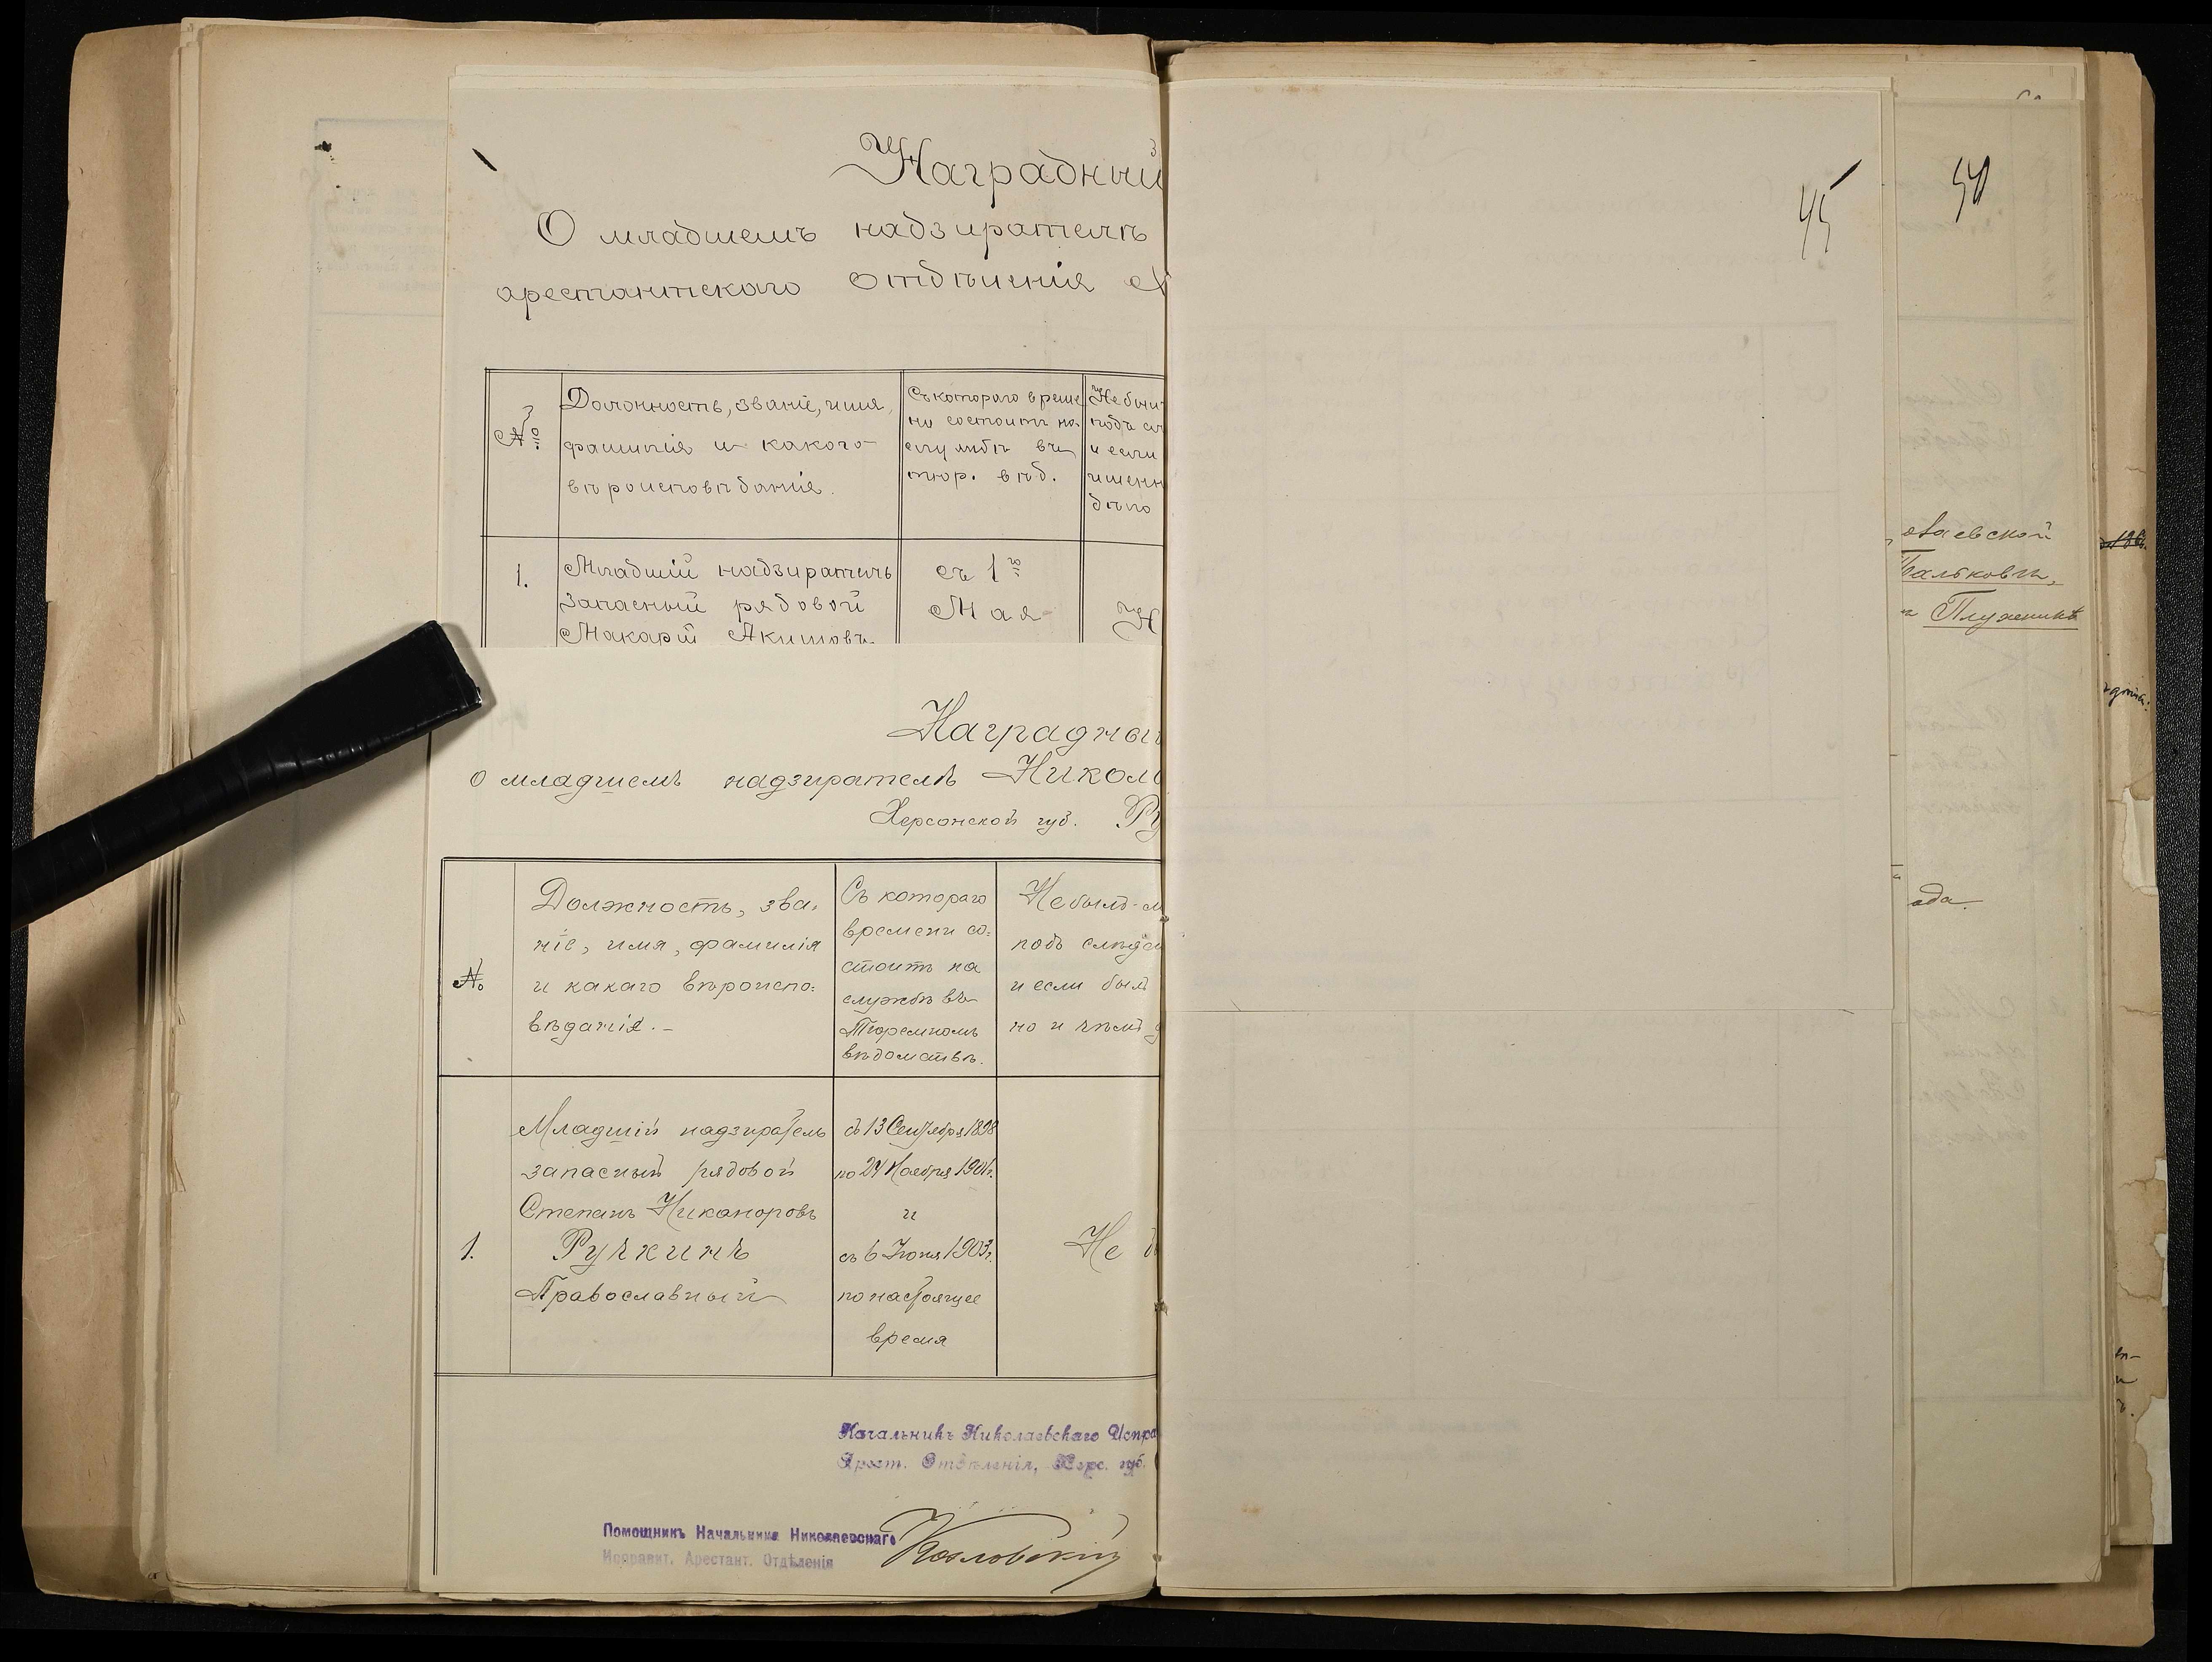 Наградный
О младшемъ надзирателѣ
арестантскаго Отдѣленія
№
Должность, званіе, имя,
фамилія и какого
вѣроисповѣданія.
Съ котораго време
ни состоитъ на
службѣ въ
тюр. вѣд.
Не былъ
подъ сл
и если
именн
было
1.
Младшій надзиратель
запасный рядовой
Макарій Акимовъ
съ 1го
Мая
Н
Наградный
О младшемъ надзирателѣ Никол
Херсонской губ. Ру
№
Должность, зва-
ніе, имя, фамилія
и какаго вѣроиспо-
вѣданія.
Съ котораго
времени со-
стоитъ на
службѣ въ
Тюремномъ
вѣдомствѣ.
Не былъ-л
подъ слѣдс
и если былъ
но и чѣмъ
1.
Младшій надзиратель
запасный рядовой
Степанъ Никаноровъ
Ручкинъ
Православный
съ 13 Сентября 1898
по 24 Ноября 1901г.
и
съ 6 Іюня 1903г.
по настоящее
время
Не
Начальникъ Николаевскаго Испра
Арест. Отдѣленія, Херс. губ.
Помощникъ Начальника Николаевскаго
Исправит. Арестант. Отдѣленія
Козловскій
45
50
аевской
Плужникъ
ода.